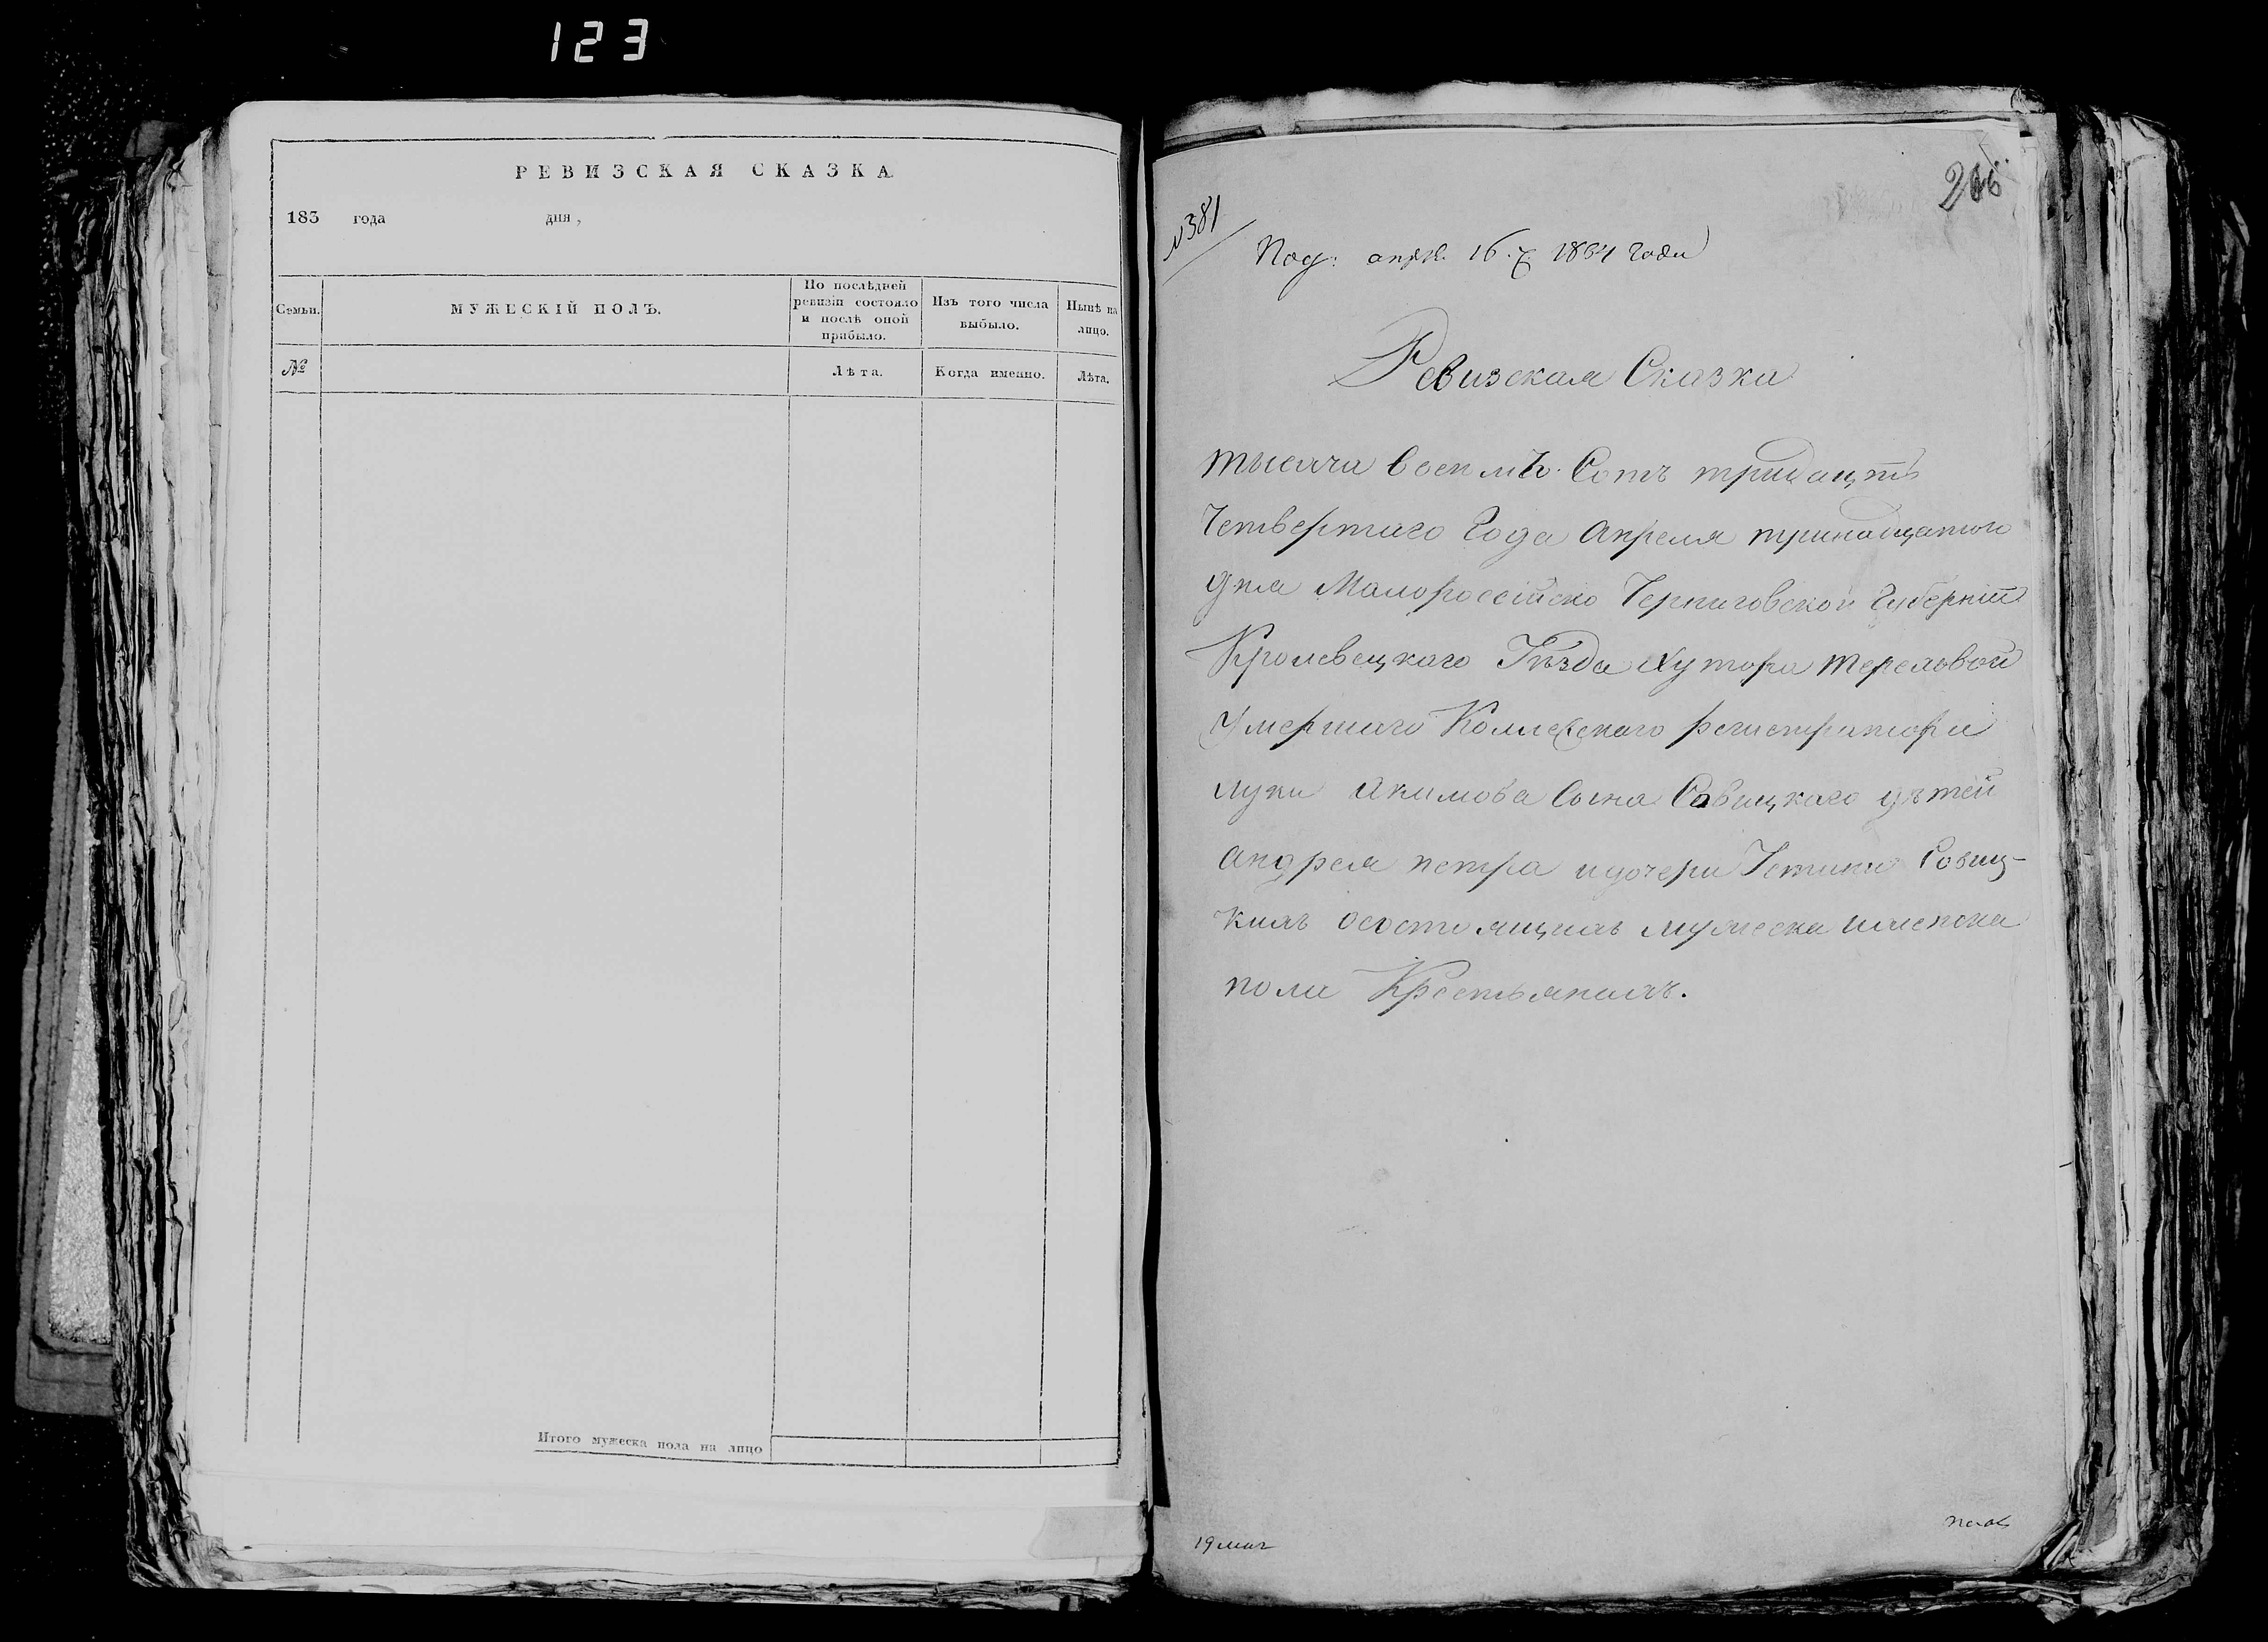 123
РЕВИЗСКАЯ СКАЗКА
183 года дня,
Семьи.
МУЖЕСКІЙ ПОЛЪ.
По послѣдней
ревизіи состояло
и послѣ оной
прибыло.
Изъ того числа
выбыло.
Нынѣ на
лицо.
№
Лѣта.
Когда именно.
Лѣта.
Итого мужеска пола на лицо
№381
Под: апрѣ. 16. 1834 года
Ревизская Сказка
тысяча восемь Сотъ тридцать
Четвертаго Года Апреля тринадцатого
дня Малороссійско Черниговской Губерніи
Кролевецкаго Уѣзда Хутора
Умершаго Коллежскаго регистратора
луки Акимова Сына Савицкаго дѣтей
Андрея петра идочери Савиц-
кихъ осостоящихъ мужеска иженска
пола Крестьянахъ.